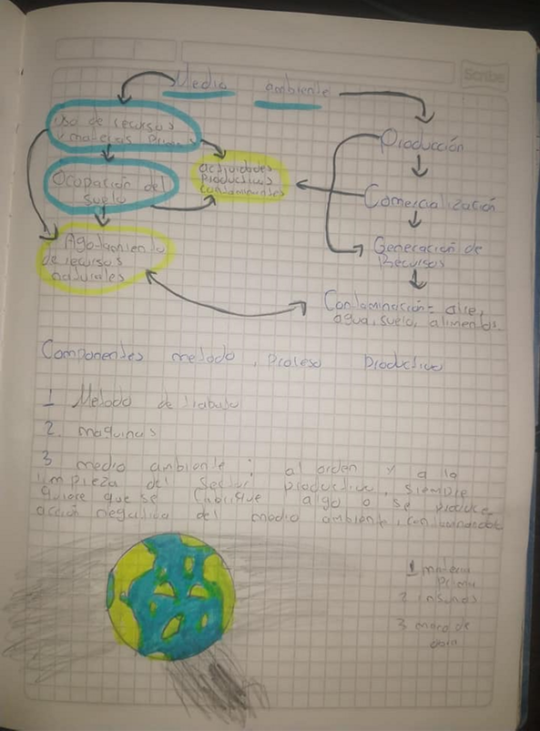 Scribe
Medio ambiente
Uso de recursos
y materias primas
Ocupación del
suelo
Agotamiento
de recursos
naturales
actividades
productivas
contaminantes
Producción
Comercialización
Generación de
Recursos
Contaminación: aire,
agua, suelo, alimentos.
Componentes metodo, proceso productivo
1 Metodo de trabajo
2. maquinas
3 medio ambiente: al orden y a la
limpieza del sector productivo, siempre
quiere que se fabrique algo o se produce
acción negativa del medio ambiente, contaminandolo
1 materia
Prima
2 insumos
3 mano de
obra